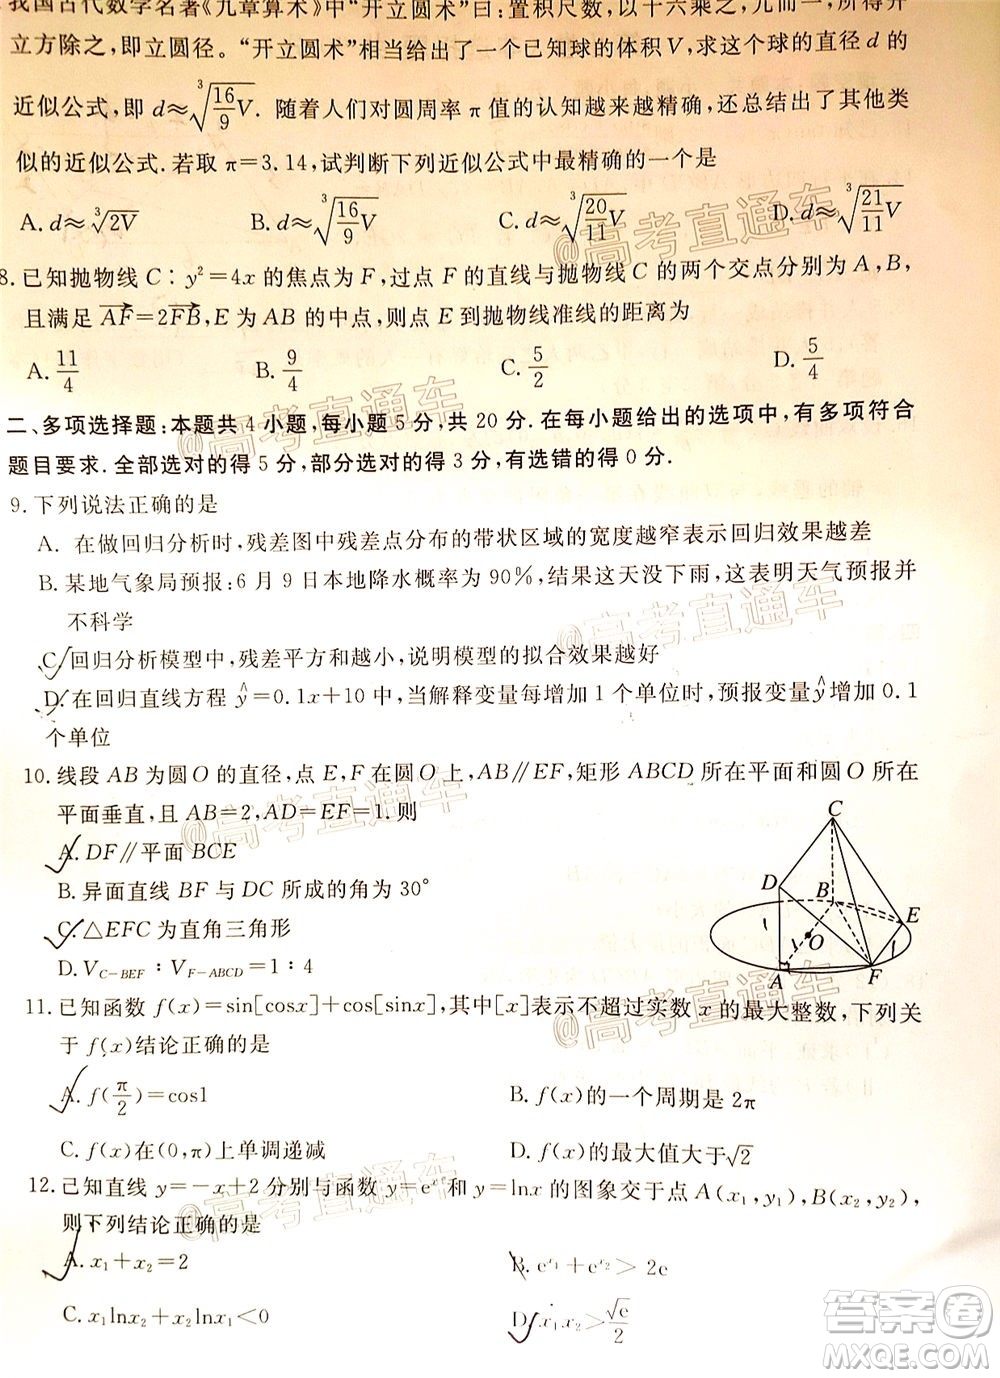 我国古代数学名著《九章算术》中“开立圆术”曰：置积尺数，以十六乘之，九而一，所得开
立方除之，即立圆径．“开立圆术”相当给出了一个已知球的体积V，求这个球的直径 d 的
近似公式，即 d≈∛(16/9 V)．随着人们对圆周率 π 值的认知越来越精确，还总结出了其他类
似的近似公式．若取 π=3.14，试判断下列近似公式中最精确的一个是
A. d≈∛(2V) B. d≈∛(16/9 V) C. d≈∛(20/11 V) D. d≈∛(21/11 V)
8. 已知抛物线 C：y²=4x 的焦点为 F，过点 F 的直线与抛物线 C 的两个交点分别为 A，B，
且满足 AF→=2FB→，E 为 AB 的中点，则点 E 到抛物线准线的距离为
A. 11/4 B. 9/4 C. 5/2 D. 5/4
二、多项选择题：本题共 4 小题，每小题 5 分，共 20 分．在每小题给出的选项中，有多项符合
题目要求．全部选对的得 5 分，部分选对的得 3 分，有选错的得 0 分．
9. 下列说法正确的是
A. 在做回归分析时，残差图中残差点分布的带状区域的宽度越窄表示回归效果越差
B. 某地气象局预报：6 月 9 日本地降水概率为 90%，结果这天没下雨，这表明天气预报并
不科学
C. 回归分析模型中，残差平方和越小，说明模型的拟合效果越好
D. 在回归直线方程 ŷ=0.1x+10 中，当解释变量每增加 1 个单位时，预报变量 ŷ 增加 0.1
个单位
10. 线段 AB 为圆 O 的直径，点 E，F 在圆 O 上，AB∥EF，矩形 ABCD 所在平面和圆 O 所在
平面垂直，且 AB=2，AD=EF=1．则
A. DF∥平面 BCE
B. 异面直线 BF 与 DC 所成的角为 30°
C. △EFC 为直角三角形
D. V_{C-BEF}：V_{F-ABCD}=1：4
C
D
B
E
O
A
F
1
1
1
11. 已知函数 f(x)=sin[cosx]+cos[sinx]，其中[x]表示不超过实数 x 的最大整数，下列关
于 f(x)结论正确的是
A. f(π/2)=cos1 B. f(x)的一个周期是 2π
C. f(x)在(0,π)上单调递减 D. f(x)的最大值大于√2
12. 已知直线 y=-x+2 分别与函数 y=eˣ 和 y=lnx 的图象交于点 A(x₁,y₁)，B(x₂,y₂)，
则下列结论正确的是
A. x₁+x₂=2 B. e^{x₁}+e^{x₂}>2e
C. x₁lnx₂+x₂lnx₁<0 D. x₁x₂>√e/2
@高考直通车
@高考直通车
@高考直通车
@高考直通车
@高考直通车
@高考直通车
答案圈
MXQE.COM